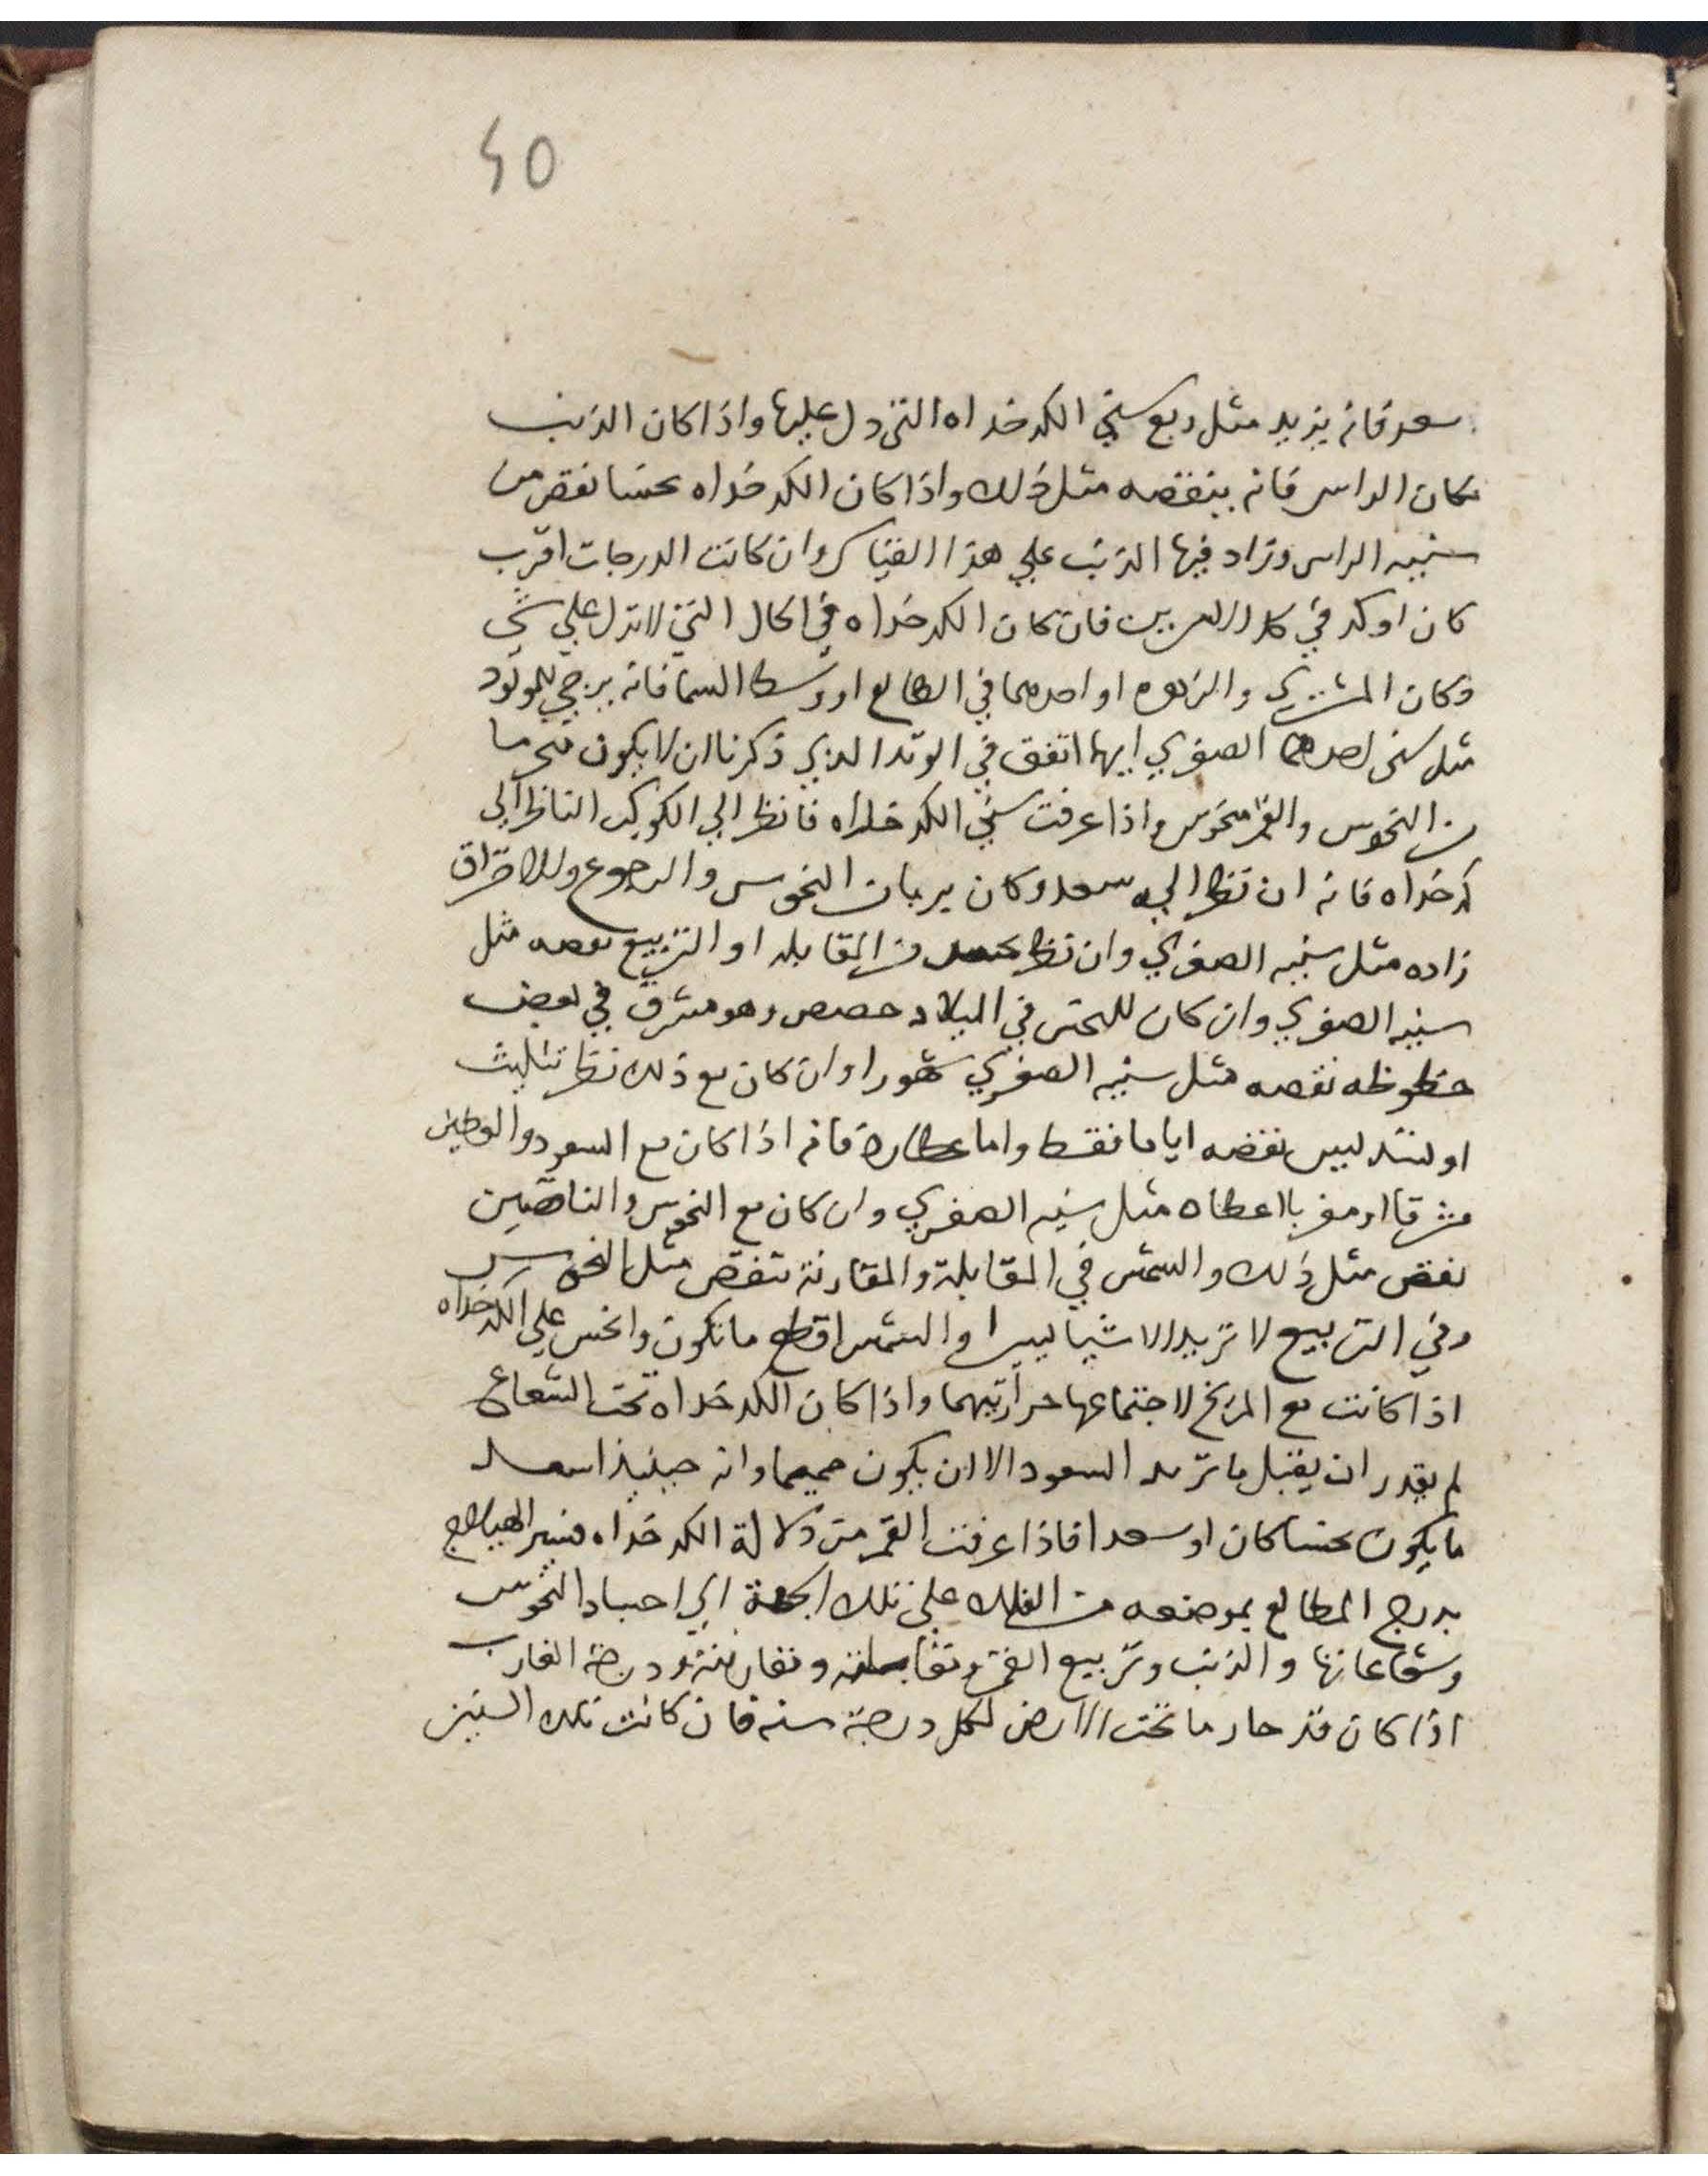 ٤٥
سعد فانه يزيد مثل ربع سني الكدخداه التي دل عليها واذا كان الذنب
مكان الراس فانه ينقصه مثل ذلك واذا كان الكدخداه نحسا نقص من
سنيه الراس وزاد فيها الذنب علي هذا القياس وان كانت الدرجات اقرب
كان اوكد في كلا الامرين فان كان الكدخداه في الحال التي لا تدل علي شي
وكان المشتري والزهره او احدهما في الطالع او وسط السما فانه يرجي للمولود
مثل سني احدهما الصغري ايهما اتفق في الوتد الذي ذكرنا ان لا يكون
من النحوس والقمر منحوس واذا عرفت سني الكدخداه فانظر الي الكوكب الناظر الي
كدخداه فانه ان نظر اليه سعد وكان بريا من النحوس والرجوع والاحتراق
زاده مثل سنيه الصغري وان نظر من المقابله او التربيع نقصه مثل
سنيه الصغري وان كان للنحس في الميلاد حصص وهو مشرق في بعض
حظوظه نقصه مثل سنيه الصغري شهورا وان كان مع ذلك نظر تثليث
او تسديس نقصه اياما فقط واما عطارد فانه اذا كان مع السعود والمعطين
مشرقا او مغربا اعطاه مثل سنيه الصغري وان كان مع النحوس والناقصين
نقص مثل ذلك والشمس في المقابلة والمقارنة تنقص مثل النحوس
وفي التربيع لا تزيد الا شيا يسيرا والشمس اقطع ما تكون وانحس علي الكدخداه
اذا كانت مع المريخ لاجتماعها حرارتيهما واذا كان الكدخداه تحت الشعاع
لم يقدر ان يقبل ما تزيد السعود الا ان يكون صميما وانه حينيذ اسعد
ما يكون نحسا كان او سعدا فاذا عرفت القمر من دلالة الكدخداه فسير الهيلاج
بدرج المطالع بموضعه من الفلك علي تلك الجهة الي اجساد النحوس
وشعاعاتها والذنب وتربيع القمر ومقابلته ومقارنته ودرجة الغارب
اذا كان قد حار ما تحت الارض لكل درجة سنه فان كانت تلك السنين